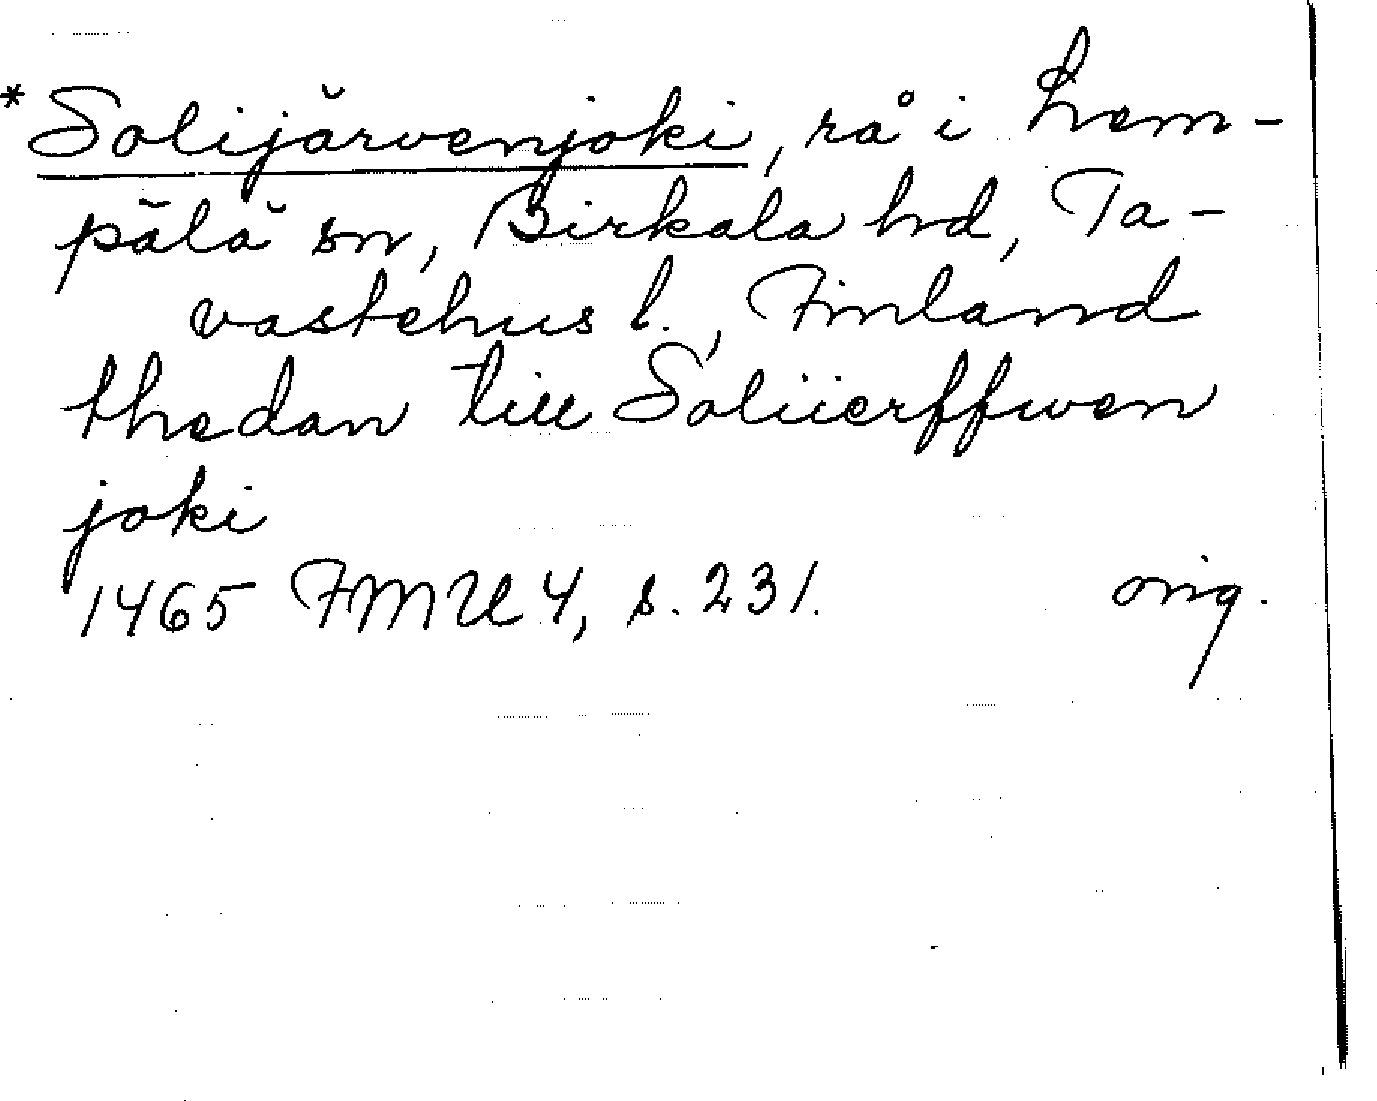 *Solijärvenjoki, rå i Lem-
pälä sn, Birkala hd, Ta-
vastehus l., Finland
thedan till Soliierffwen
joki
1465 FMU 4, s. 231. orig.